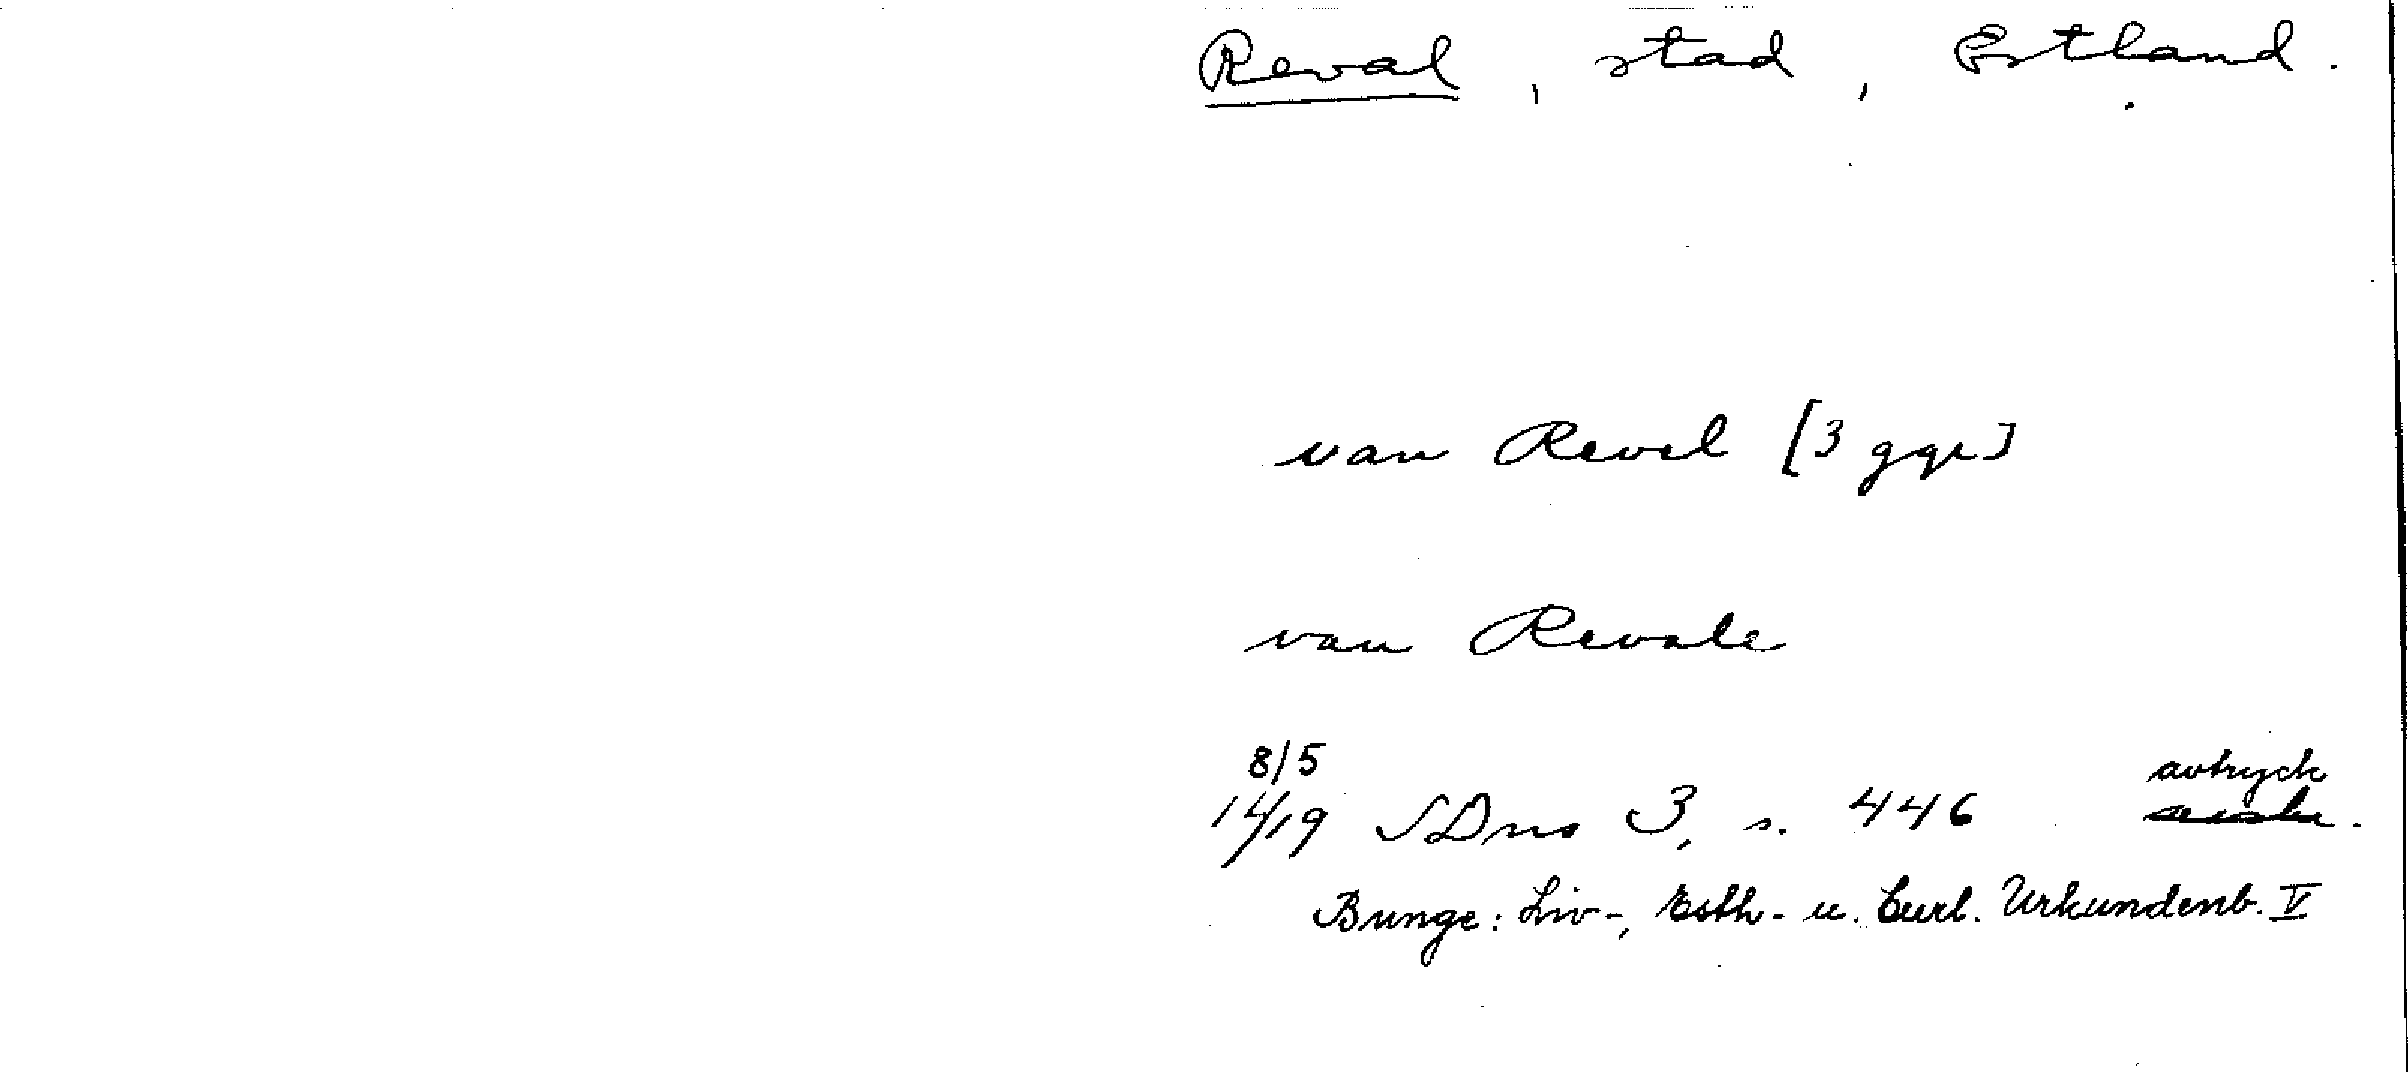 Reval, stad, Estland.
van Revel [3 ggr]
van Revale
8/5
1419 SDns 3, s. 446 avtryck
Bunge: Liv-, Esth- u. Curl. Urkundenb. V